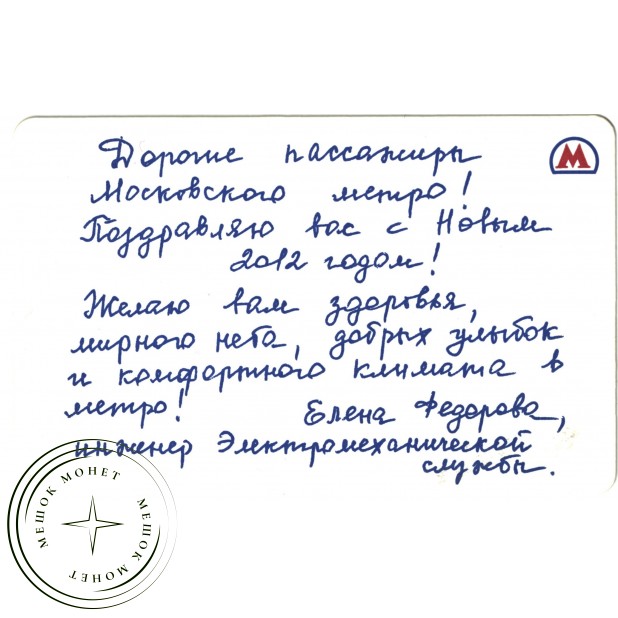 Дорогие пассажиры
М
Московского метро!
Поздравляю вас с Новым
2012 годом!
Желаю вам здоровья,
мирного неба, добрых улыбок
и комфортного климата в
метро!
Елена Федорова,
инженер Электромеханической
службы.
МЕШОК МОНЕТ
МЕШОК МОНЕТ